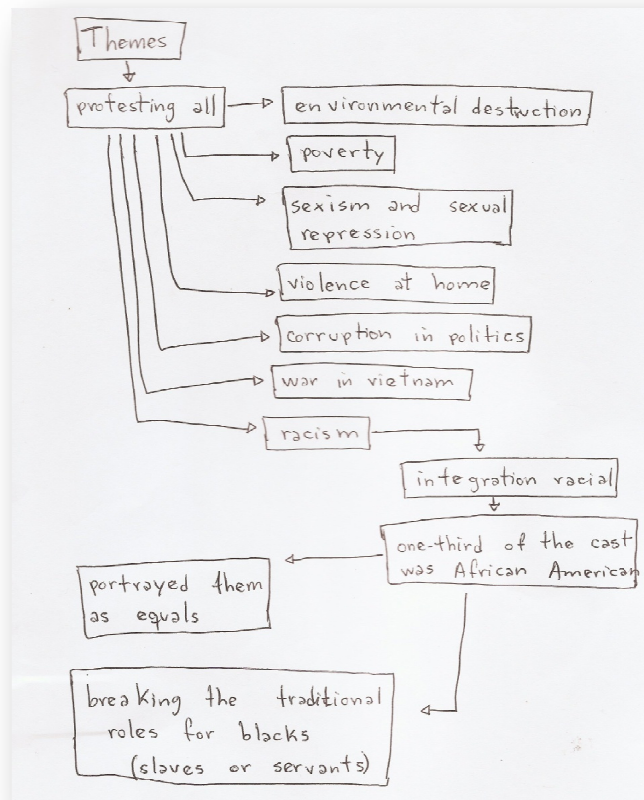 Themes
protesting all
environmental destruction
poverty
sexism and sexual
repression
violence at home
corruption in politics
war in vietnam
racism
integration racial
one-third of the cast
was African American
portrayed them
as equals
breaking the traditional
roles for blacks
(slaves or servants)